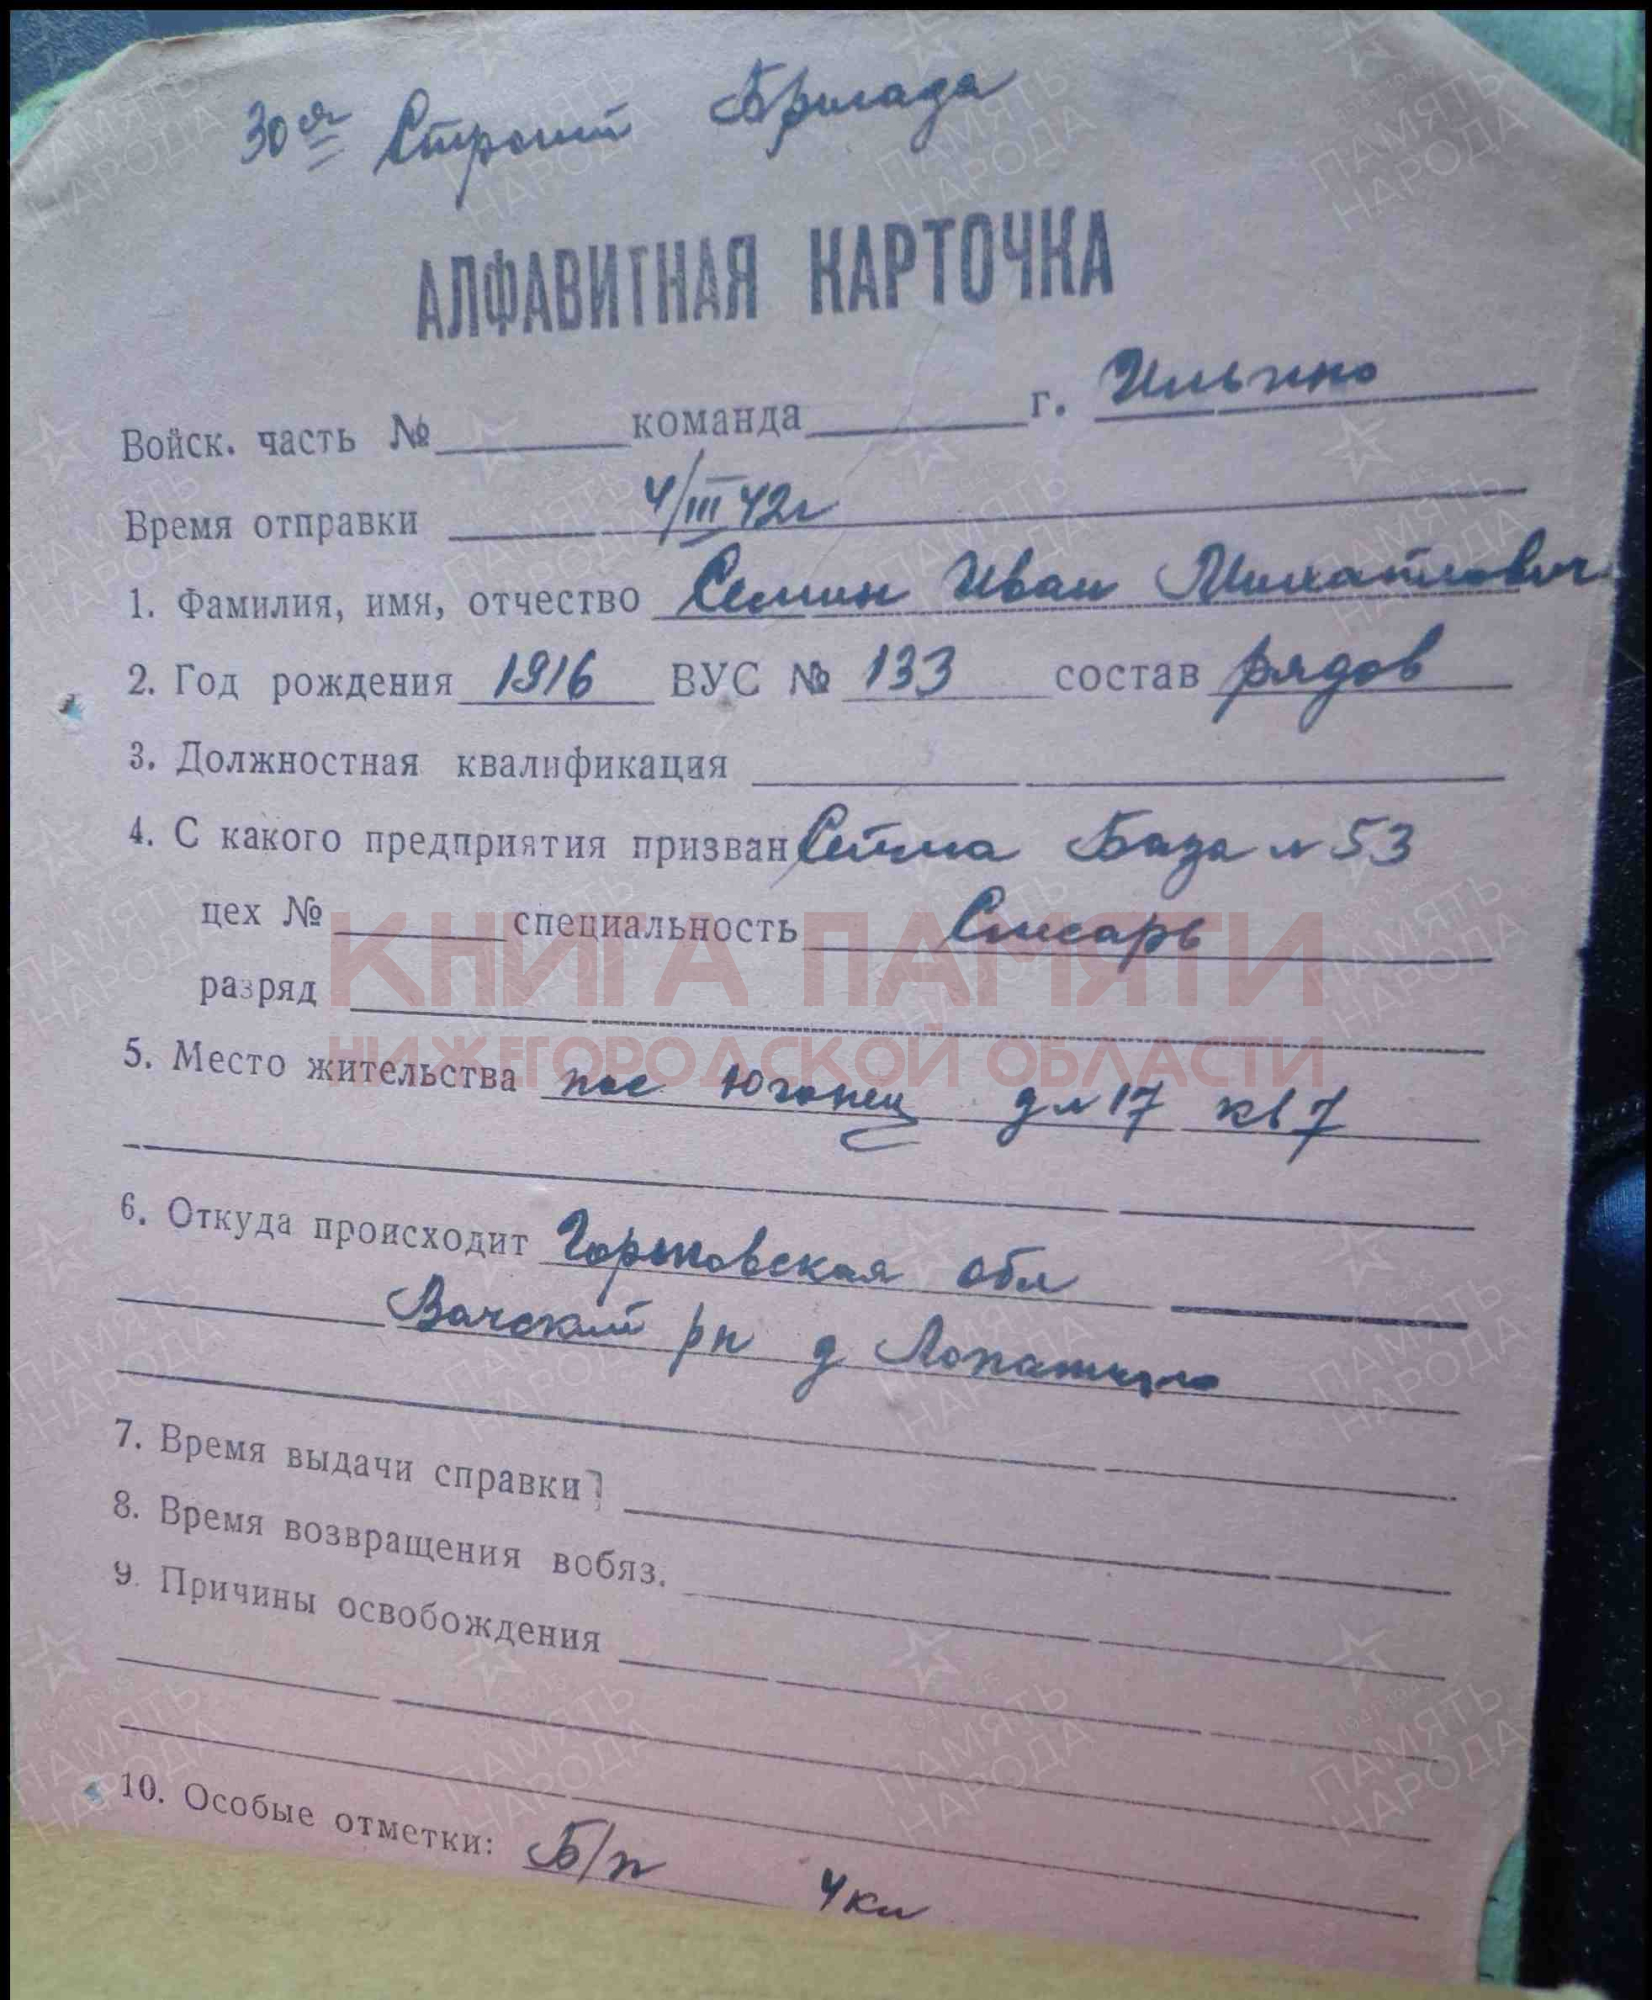 30ая Строит Бригада
АЛФАВИТНАЯ КАРТОЧКА
Войск. часть № команда г. Ильино
Время отправки 4/III 42г
1. Фамилия, имя, отчество Семин Иван Михайлович
2. Год рождения 1916 ВУС № 133 состав рядов
3. Должностная квалификация
4. С какого предприятия призван Сейма База № 53
цех № специальность Слесарь
КНИГА ПАМЯТИ
разряд
НИЖЕГОРОДСКОЙ ОБЛАСТИ
5. Место жительства пос Юганец д № 17 кв 7
6. Откуда происходит Горьковская обл
Вачский рн д Лопатино
7. Время выдачи справки
8. Время возвращения вобяз.
9. Причины освобождения
10. Особые отметки: Б/п 4 кл
ПАМЯТЬ НАРОДА